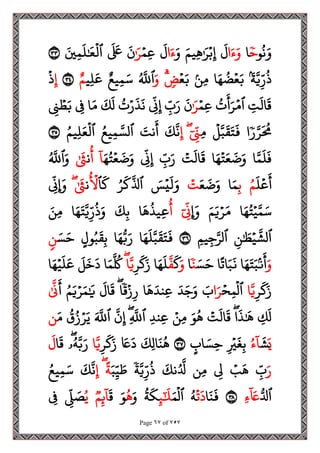 وَنُوحًا وَءَالَ إِبْرَٰهِيمَ وَءَالَ عِمْرَٰنَ عَلَى ٱلْعَٰلَمِينَ ٣٣
ذُرِّيَّةَۢ بَعْضُهَا مِنۢ بَعْضٍۗ وَٱللَّهُ سَمِيعٌ عَلِيمٌ ٣٤ إِذْ
قَالَتِ ٱمْرَأَتُ عِمْرَٰنَ رَبِّ إِنِّي نَذَرْتُ لَكَ مَا فِي بَطْنِي
مُحَرَّرًا فَتَقَبَّلْ مِنِّيٓۖ إِنَّكَ أَنتَ ٱلسَّمِيعُ ٱلْعَلِيمُ ٣٥
فَلَمَّا وَضَعَتْهَا قَالَتْ رَبِّ إِنِّي وَضَعْتُهَآ أُنثَىٰ وَٱللَّهُ
أَعْلَمُ بِمَا وَضَعَتْ وَلَيْسَ ٱلذَّكَرُ كَٱلْأُنثَىٰۖ وَإِنِّي
سَمَّيْتُهَا مَرْيَمَ وَإِنِّيٓ أُعِيذُهَا بِكَ وَذُرِّيَّتَهَا مِنَ
ٱلشَّيْطَٰنِ ٱلرَّجِيمِ ٣٦ فَتَقَبَّلَهَا رَبُّهَا بِقَبُولٍ حَسَنٍ
وَأَنۢبَتَهَا نَبَاتًا حَسَنًا وَكَفَّلَهَا زَكَرِيَّاۖ كُلَّمَا دَخَلَ عَلَيْهَا
زَكَرِيَّا ٱلْمِحْرَابَ وَجَدَ عِندَهَا رِزْقًاۖ قَالَ يَٰمَرْيَمُ أَنَّىٰ
لَكِ هَٰذَاۖ قَالَتْ هُوَ مِنْ عِندِ ٱللَّهِۖ إِنَّ ٱللَّهَ يَرْزُقُ مَن
يَشَآءُ بِغَيْرِ حِسَابٍ ٣٧ هُنَالِكَ دَعَا زَكَرِيَّا رَبَّهُۥۖ قَالَ
رَبِّ هَبْ لِي مِن لَّدُنكَ ذُرِّيَّةً طَيِّبَةًۖ إِنَّكَ سَمِيعُ
ٱلدُّعَآءِ ٣٨ فَنَادَتْهُ ٱلْمَلَٰٓئِكَةُ وَهُوَ قَآئِمٌ يُصَلِّي فِي
Page ٦٧ of ٧٥٧